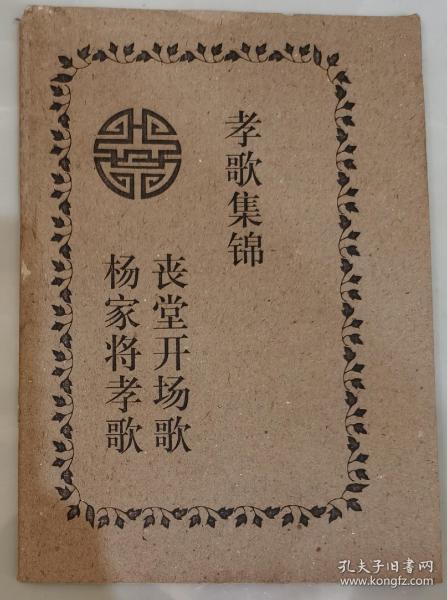 孝歌集锦
丧堂开场歌
杨家将孝歌
孔夫子旧书网
www.kongfz.com